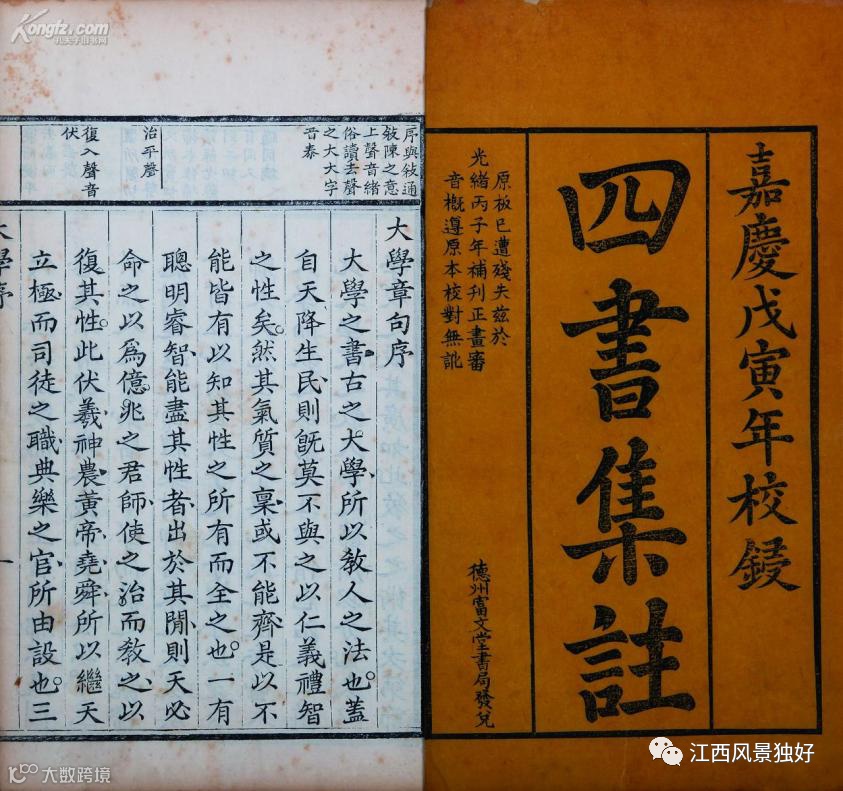 嘉慶戊寅年校鋟
四書集註
原板已遭殘失茲於
光緒丙子年補刋正畫審
音概遵原本校對無訛
德州富文堂書局發兌
序與敘通
敘陳之意
上聲音緒
俗讀去聲
之大大字
音泰
治平聲
復入聲音
伏
大學章句序
大學之書古之大學所以敎人之法也。蓋
自天降生民則旣莫不與之以仁義禮智
之性矣。然其氣質之稟或不能齊是以不
能皆有以知其性之所有而全之也。一有
聰明睿智能盡其性者出於其閒則天必
命之以爲億兆之君師使之治而敎之以
復其性。此伏羲神農黃帝堯舜所以繼天
立極而司徒之職典樂之官所由設也。三
大學序
一
Kongfz.com
孔夫子旧书网
大数跨境
江西风景独好